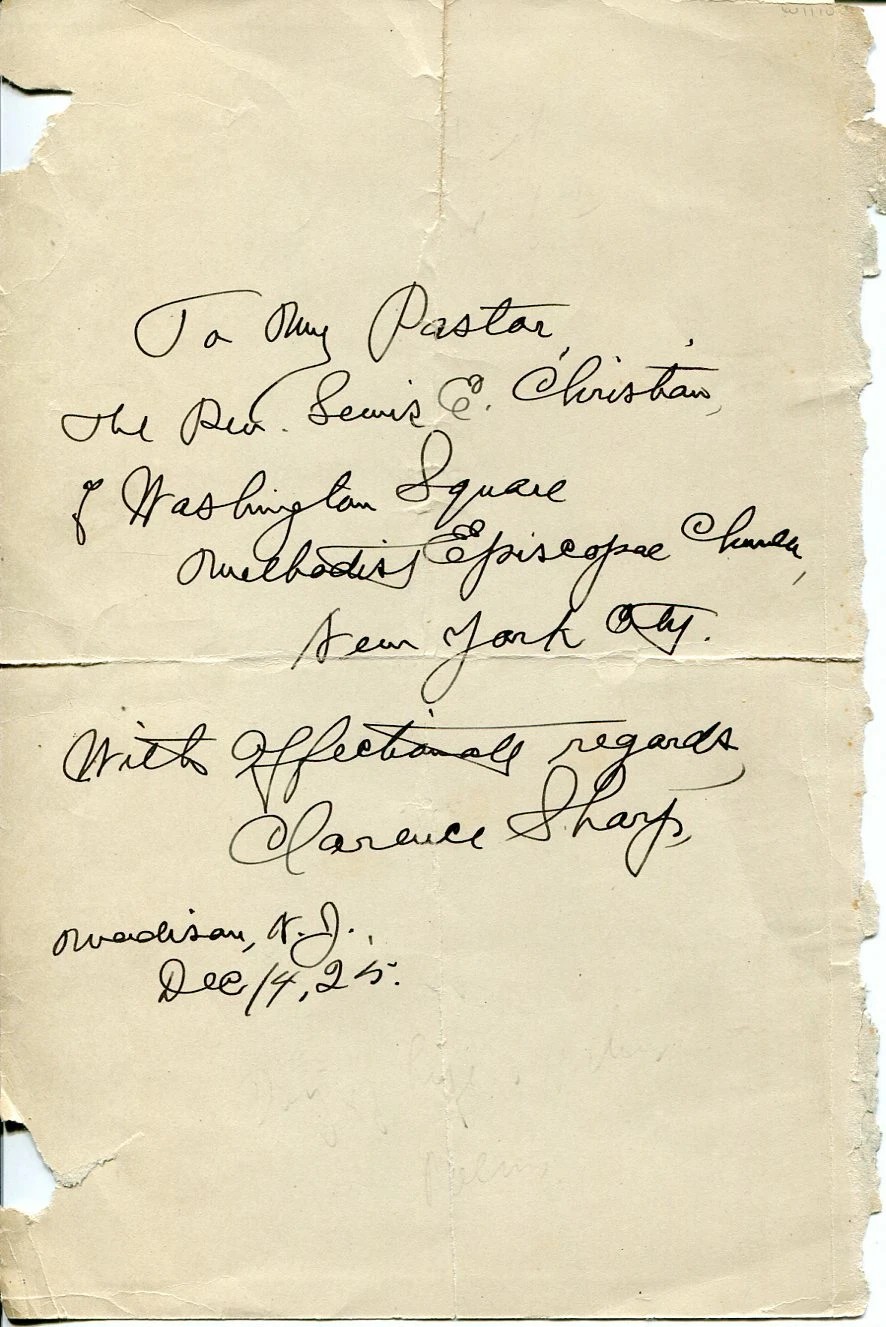 To My Pastor,
The Rev. Lewis E. Christian,
of Washington Square
Methodist Episcopal Church,
New York City.
With Affectionate regards,
Clarence Sharp,
Madison, N.J.,
Dec 14, 25.